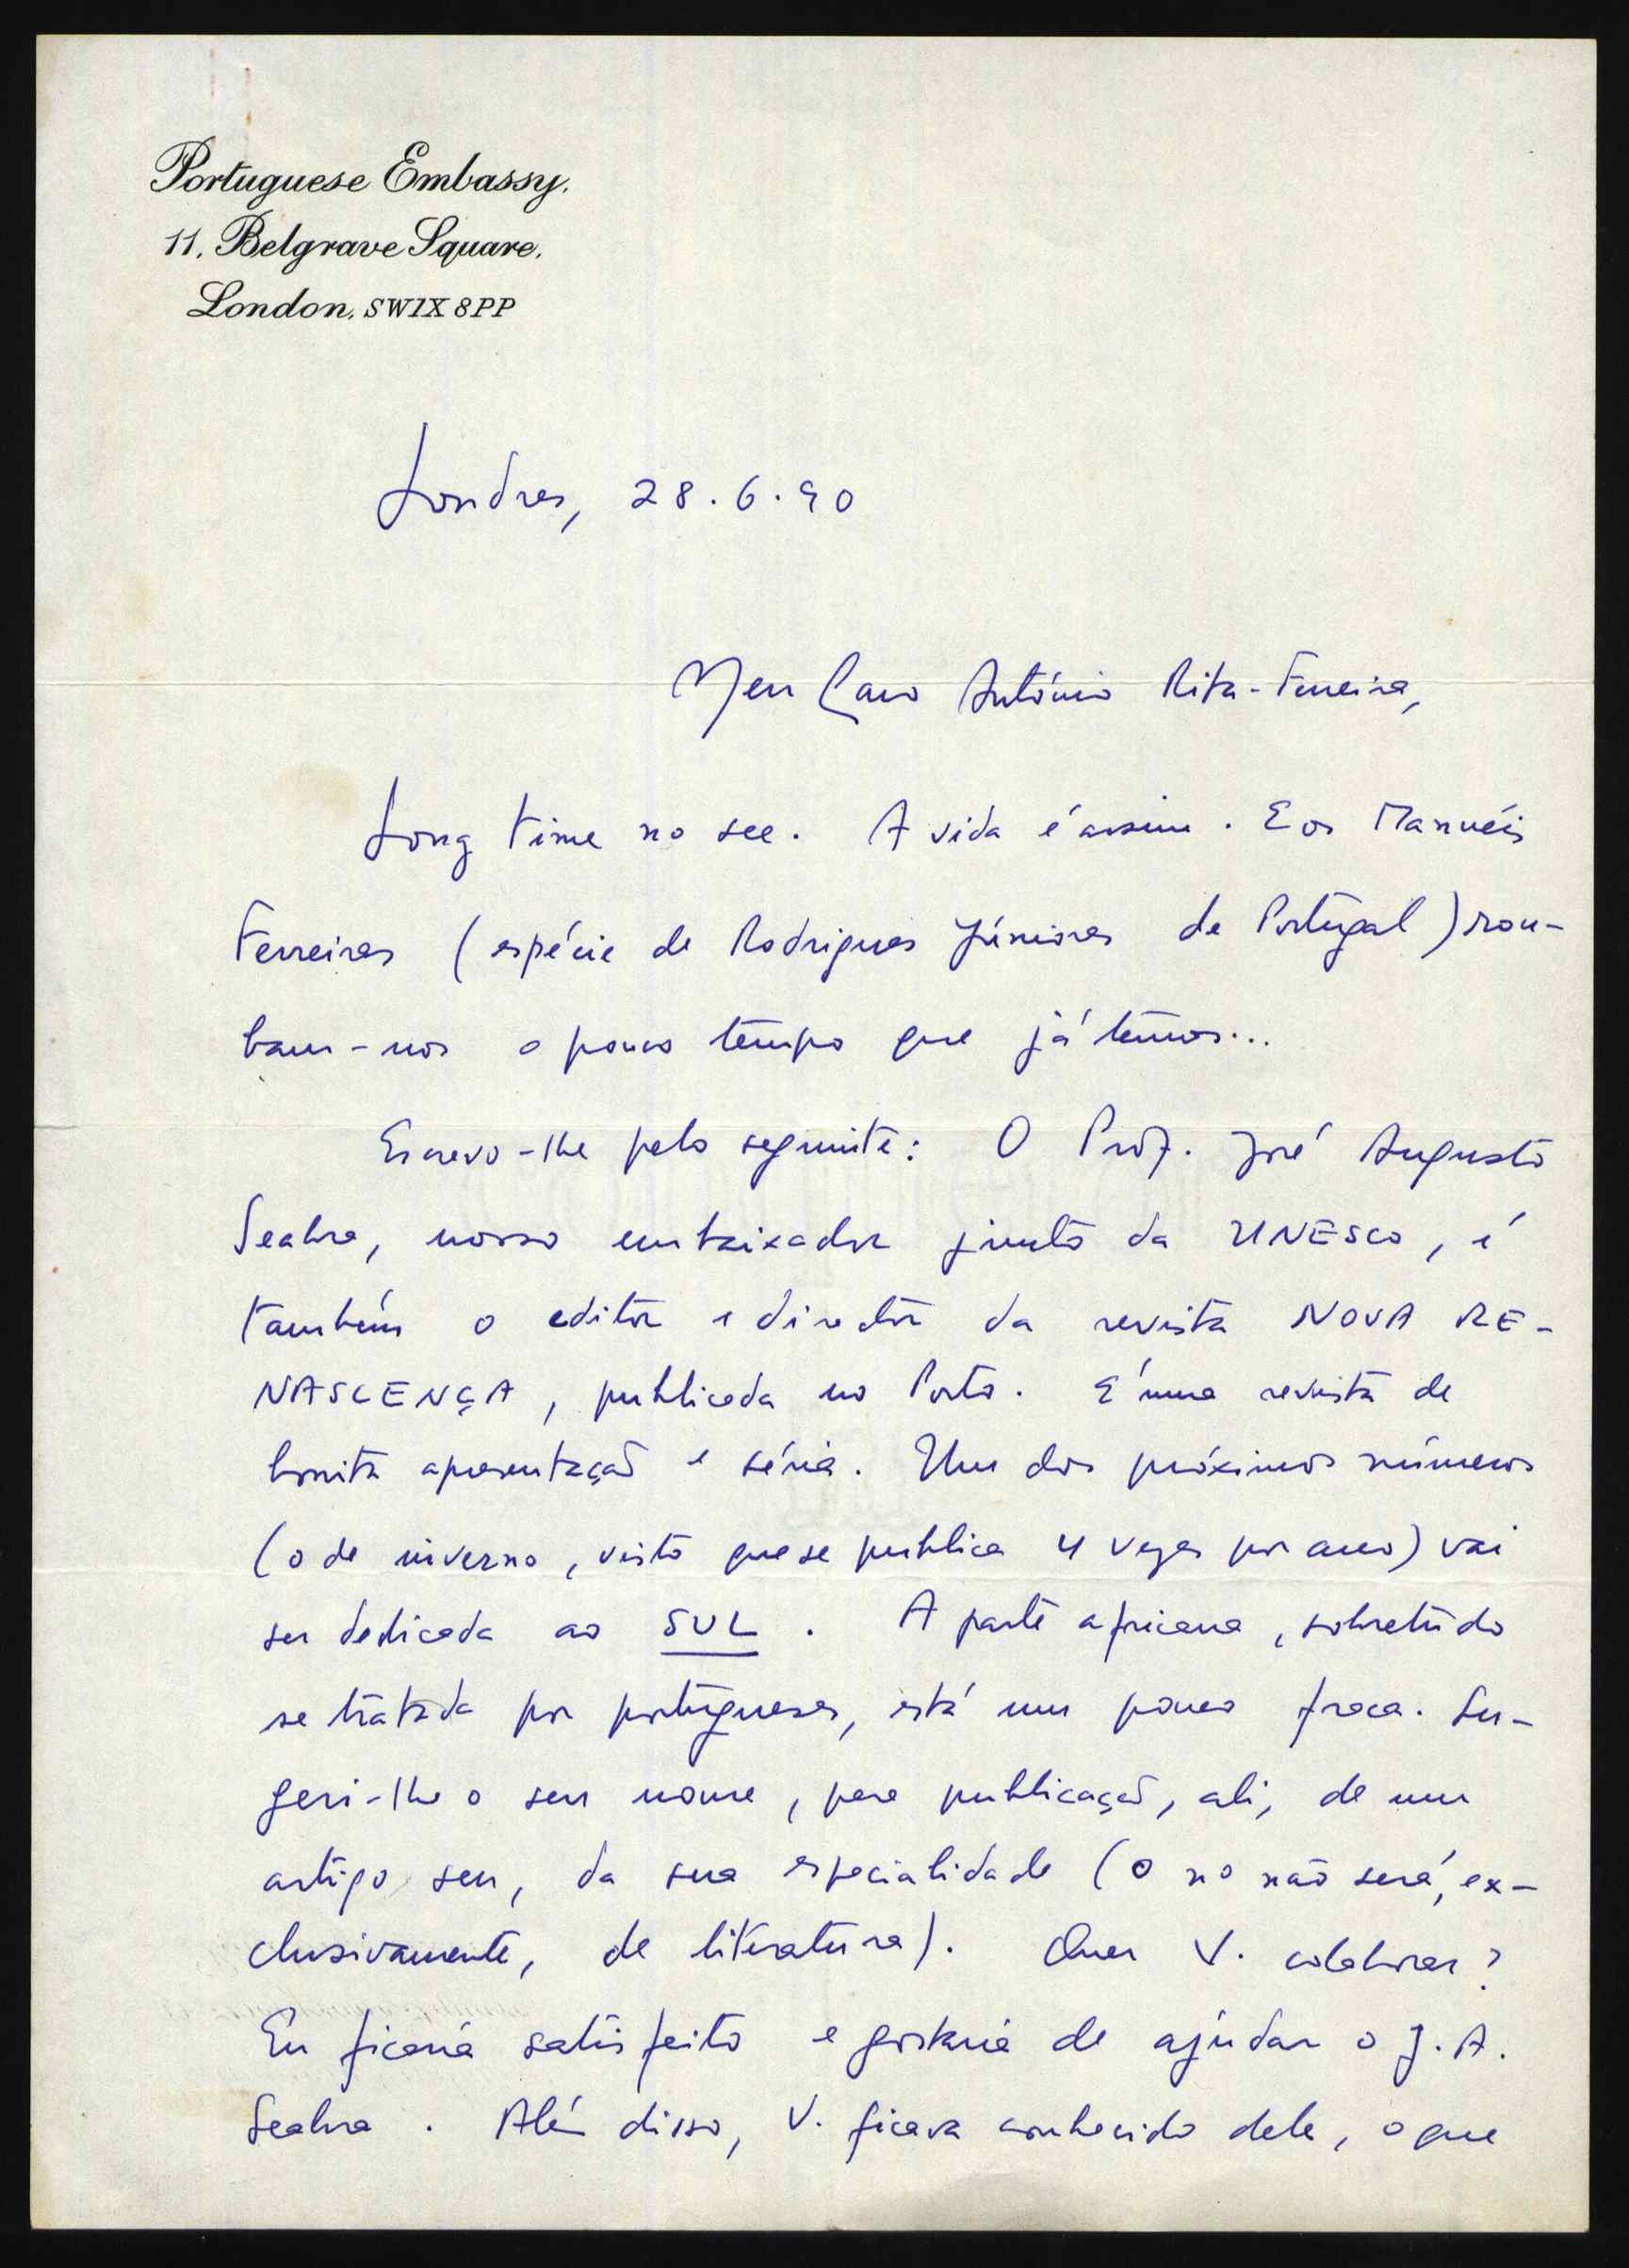 Portuguese Embassy.
11, Belgrave Square.
London. SW1X 8PP
Londres, 28.6.90
Meu Caro António Rita-Ferreira,
Long time no see. A vida é assim. E os Manuéis
Ferreiras (espécie de Rodrigues Júniores de Portugal) rou-
bam-nos o pouco tempo que já temos...
Escrevo-lhe pelo seguinte: O Prof. José Augusto
Seabra, nosso embaixador junto da UNESCO, é
também o editor e director da revista NOVA RE-
NASCENÇA, publicada no Porto. É uma revista de
bonita apresentação e séria. Um dos próximos números
(o de inverno, visto que se publica 4 vezes por ano) vai
ser dedicada ao SUL. A parte africana, sobretudo
se tratada por portugueses, está um pouco fraca. Su-
geri-lhe o seu nome, para publicação, ali, de um
artigo seu, da sua especialidade (o nº não será, ex-
clusivamente, de literatura). Quer V. colaborar?
Eu ficaria satisfeito e gostaria de ajudar o J. A.
Seabra. Além disso, V. ficava conhecido dele, o que